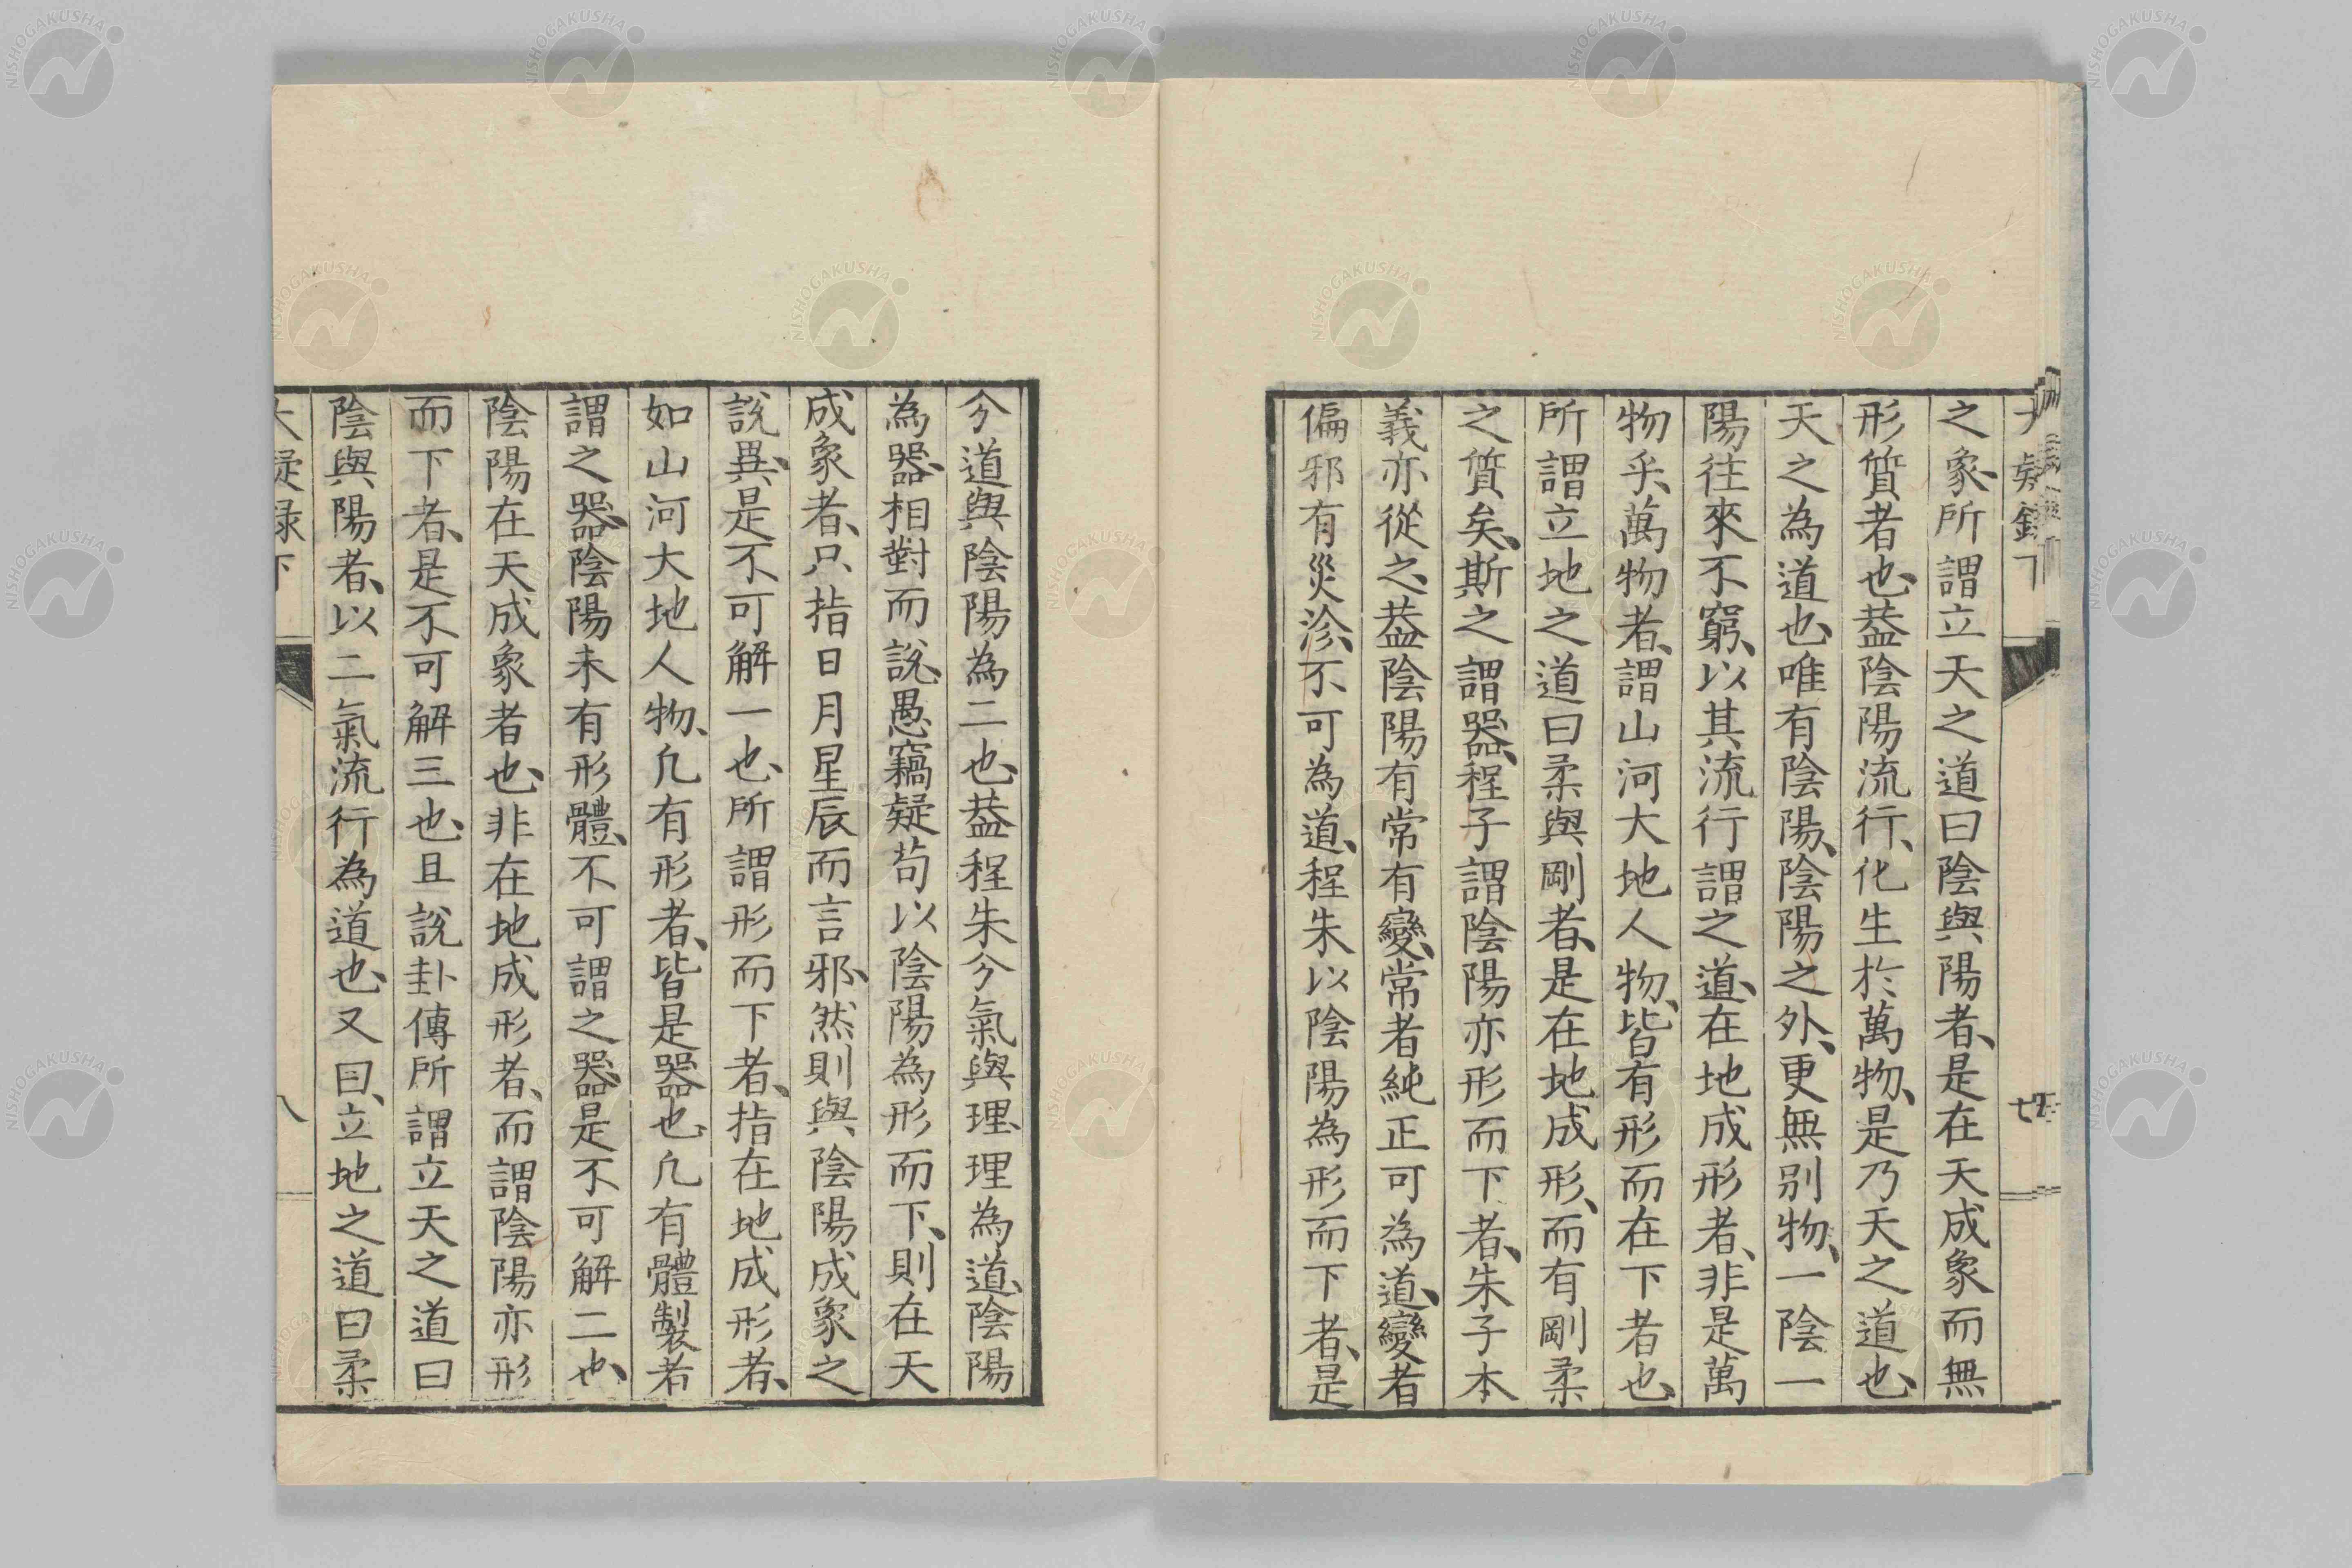 大疑錄下
七
之象、所謂立天之道曰陰與陽者、是在天成象而無
形質者也、葢陰陽流行、化生於萬物、是乃天之道也、
天之為道也、唯有陰陽、陰陽之外、更無別物、一陰一
陽往來不窮、以其流行謂之道、在地成形者、非是萬
物乎、萬物者、謂山河大地人物、皆有形而在下者也、
所謂立地之道曰柔與剛者、是在地成形、而有剛柔
之質矣、斯之謂器、程子謂陰陽亦形而下者、朱子本
義亦從之、葢陰陽有常有變、常者純正可為道、變者
偏邪有災沴、不可為道、程朱以陰陽為形而下者、是
分道與陰陽為二也、葢程朱分氣與理、理為道、陰陽
為器、相對而說、愚竊疑苟以陰陽為形而下、則在天
成象者、只指日月星辰而言邪、然則與陰陽成象之
說異、是不可解一也、所謂形而下者、指在地成形者、
如山河大地人物、凡有形者、皆是器也、凡有體製者
謂之器、陰陽未有形體、不可謂之器、是不可解二也、
陰陽在天成象者也、非在地成形者、而謂陰陽亦形
而下者、是不可解三也、且說卦傳所謂立天之道曰
陰與陽者、以二氣流行為道也、又曰、立地之道曰柔
大疑錄下
八
NISHOGAKUSHA